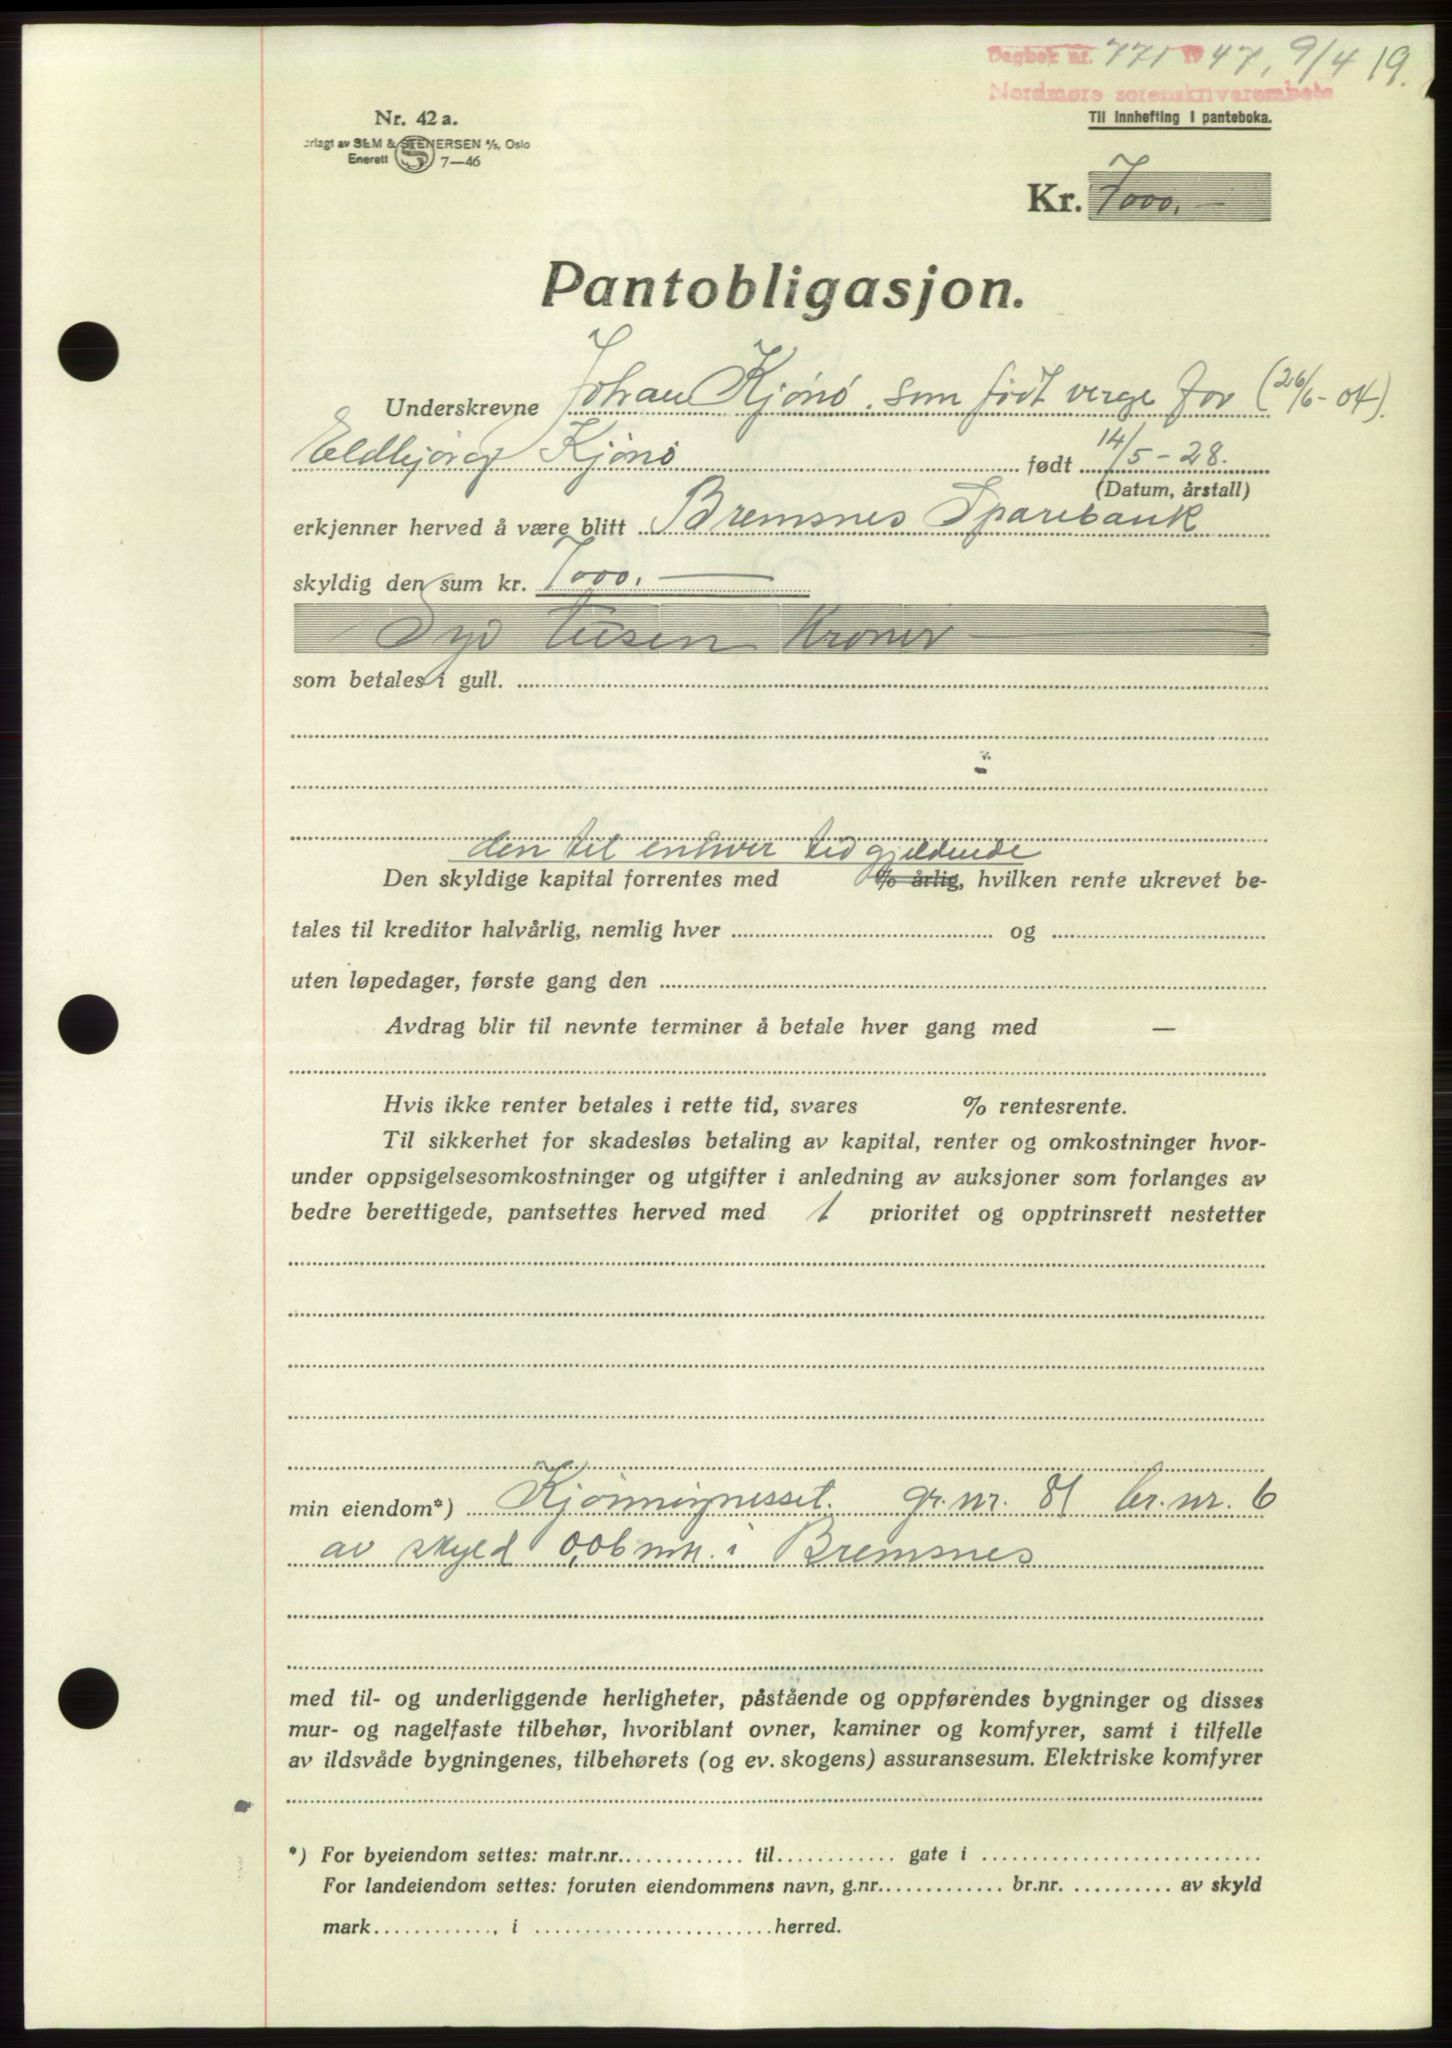 Dagbok nr. 771 1947, 9/4 19.
Nordmøre sorenskriverembete
Til innhefting i panteboka.
Nr. 42 a.
erlagt av SEM & STENERSEN A/S, Oslo
Enerett S 7—46
Kr. 7000.—
Pantobligasjon.
Underskrevne Johan Kjönö. som födt verge for (26/6-04).
Eldbjörg Kjönö født 14/5-28.
(Datum, årstall)
erkjenner herved å være blitt Bremsnes Sparebank
skyldig den sum kr. 7000.—
Syv tusen Kroner
som betales i gull.
den til enhver tid gjeldende
Den skyldige kapital forrentes med % årlig, hvilken rente ukrevet be-
tales til kreditor halvårlig, nemlig hver og
uten løpedager, første gang den
Avdrag blir til nevnte terminer å betale hver gang med —
Hvis ikke renter betales i rette tid, svares % rentesrente.
Til sikkerhet for skadesløs betaling av kapital, renter og omkostninger hvor-
under oppsigelsesomkostninger og utgifter i anledning av auksjoner som forlanges av
bedre berettigede, pantsettes herved med 1 prioritet og opptrinsrett nestetter
min eiendom*) gr.nr. 81 br.nr. 6
av skyld 0,06 mk. i Bremsnes
med til- og underliggende herligheter, påstående og oppførendes bygninger og disses
mur- og nagelfaste tilbehør, hvoriblant ovner, kaminer og komfyrer, samt i tilfelle
av ildsvåde bygningenes, tilbehørets (og ev. skogens) assuransesum. Elektriske komfyrer
*) For byeiendom settes: matr.nr. til gate i
For landeiendom settes: foruten eiendommens navn, g.nr. br.nr. av skyld
mark , i herred.